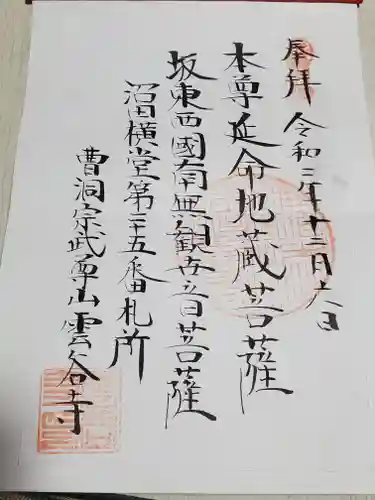 奉拝 令和二年十二月六日
本尊延命地蔵菩薩
坂東西國南無観世音菩薩
沼田横堂第三十五番札所
曹洞宗武尊山雲谷寺